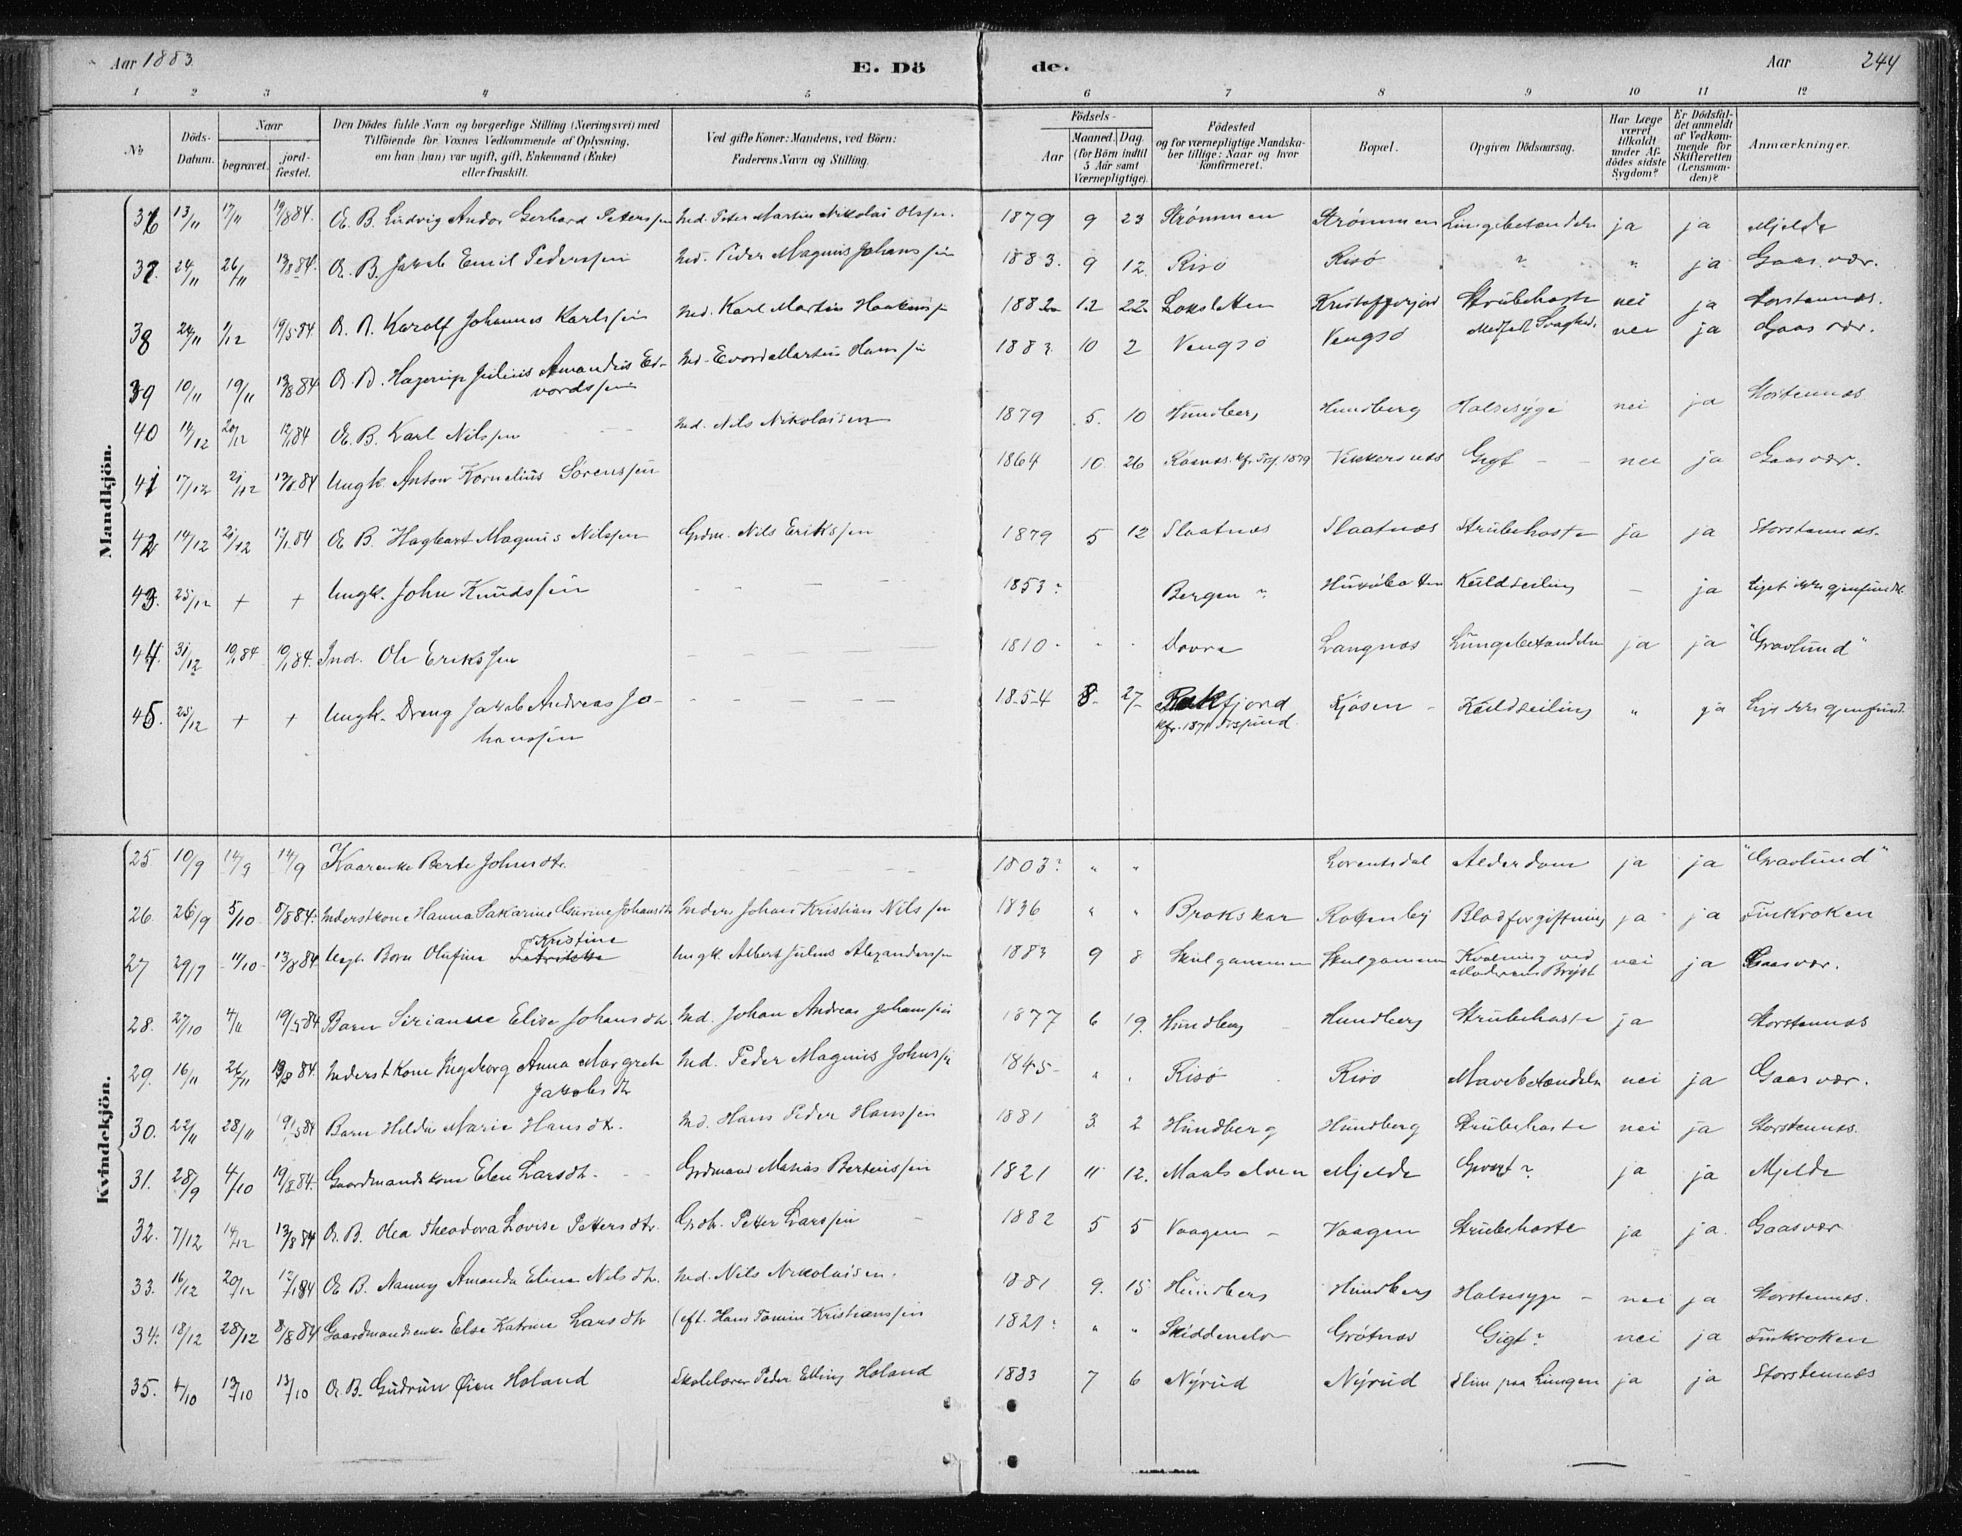 Aar 1883.
E. Dö
de.
Aar
244
1 2 3 4 5 6 7 8 9 10 11 12
No
Döds-Datum.
Naar
begravet.
jord-fæstet.
Den Dödes fulde Navn og borgerlige Stilling (Næringsvei) med
Tilföiende for Voxnes Vedkommende af Oplysning,
om han (hun) var ugift, gift, Enkemand (Enke)
eller fraskilt.
Ved gifte Koner: Mandens, ved Börn:
Faderens Navn og Stilling.
Födsels-
Aar
Maaned. Dag.
(for Börn indtil
5 Aar samt
Værnepligtige).
Födested
og for værnepligtige Mandska-
ber tillige: Naar og hvor
konfirmeret.
Bopæl.
Opgiven Dödsaarsag.
Har Læge
været
tilkaldt
under Af-
dödes sidste
Sygdom?
Er Dödsfal-
det anmeldt
af Vedkom-
mende for
Skifteretten
(Lensman-
den)?
Anmærkninger.
Mandkjön.
36 13/11 17/11 19/8 84. Æ. B. Ludvig Andor Gerhard Petterssen Ind. Peter Martin Nikolai Olsen. 1879 9 23 Strømmen Strømmen Lungebetændelse ja ja Mjelde
37. 24/11 26/11 13/8 84. Æ. B. Jakob Emil Pederssen Ind. Peder Magnus Johanssen 1883. 9 12. Risø Risø " " ja Gaasvær.
38 24/11 1/12 19/5 84 Æ. B. Karolf Johannes Karlssen Ind. Karl Martin Haakenssen 1882 12 22 Loksletten Kristoffervjord Strubehoste nei ja Storstennæs.
39 10/11 19/11 13/8 84 Æ. B. Hagerup Julius Amandus Ed-
vardssen Ind. Evard Martin Hanssen 1883. 10 2 Vengsø Vengsø Medfødt Svaghed. nei ja Gaasvær.
40 14/12 20/12 12/1 84 Æ. B. Karl Nilssen Ind. Nils Nikolaisen 1879 5. 10 Hundberg Hundberg Halsesyge nei ja Storstennæs
41 17/12 21/12 13/8 84 Ungk. Anton Kornelius Sørenssen 1864 10. 26 kfr. Trs. 1879 Vikkernæs Gigt - - nei ja Gaasvær.
42 14/12 21/12 12/1 84 Æ B. Hagbart Magnus Nilssen Grdm. Nils Erikssen 1879 5 12 Slaatnæs Slaatnæs Strubehoste ja ja Storstennæs.
43. 25/12 + + Ungk. John Knudssen 1853? Bergen ? Kuldseiling - ja Liget ikke gjenfundet.
44. 31/12 19/1 84 19/1 84. Ind. Ole Erikssen 1810 - Dovre Langnæs Lungebetændelse ja ja "Gravlund"
45. 25/12 + + Ungk. Dreng Jakob Andreas Jo-
hanssen 1854 8 27 Rakfjord
kfr. 1871 Trssund. Kjøsen - Kuldseiling " ja Liget ikke gjenfund.
Kvindekjön.
25 10/9 14/9 14/9 Kaarenke Berte Johnsdtr. 1803? " " Lorentsdal Alderdom ja ja "Gravlund"
26. 26/9 5/10 8/8 84. Inderstkone Hanna Sakarine Gurine Johansdtr Inderst Johan Kristian Nilssen 1836 " " Brokskar Rottenby Blodforgiftning ja ja Finkroken
27 29/9 11/10 13/8 84 Uægt. Barn Olufine Kristine Fredrikke Ungk Albert Julius Alexanderssen 1883 9 8 Skulgammen Skulgammen Kvælning ved
Moderens Bryst nei ja Gaasvær.
28. 27/10 4/11 19/5 84 Barn Sirianne Elise Johansdtr. Ind. Johan Andreas Johanssen 1877 6 19. Hundberg Hundberg Strubehoste ja Storstennæs
29. 16/11 26/11 13/8 84. Inderstkone Ingeborg Anna Margrete
Jakobsdtr Ind. Peder Magnus Johnssen 1845 " " Risø Risø Mavebetændelse nei ja Gaasvær.
30. 22/11 28/11 19/5 84 Barn Hilda Marie Hansdtr. Ind. Hans Peder Hanssen 1881 3 2 Hundberg Hundberg Strubehoste nei ja Storstennæs.
31. 28/9 4/10 19/8 84. Gaardmandskone Elen Larsdtr. Grdmand Matias Berteussen 1821 11 12. Maalselven Mjelde ja ja Mjelde
32. 7/12 14/12 13/8 84 Æ. B. Olea Theodora Lovise Pettersdtr. Grdb. Petter Larssen 1882 5 5 Vaagen - Vaagen Strubehoste ja ja. Gaasvær
33. 16/12 20/12 12/1 84 Æ B. Nanny Amanda Eline Nilsdtr. Ind. Nils Nikolaisen. 1881 9. 15 Hundberg Hundberg Halsesyge - nei ja Storstennæs.
34. 18/12 28/12 8/8 84 Gaardmandsenke Else Katrine Larsdtr (eft. Hans Tomin Kristianssen 1821? " " Skiddenelv Grøtnæs Gigt? nei ja Finkroken
35. 4/10 13/10 13/10 Æ. B. Gudrun Øien Holand Skolelærer Peder Elling Holand 1883 7 6 Nyrud Nyrud Slim paa Lungen ja ja Storstennæs